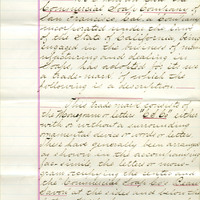 Commercial Soap Company of
San Francisco Cal. a Company
incorporated under the laws
of the State of California, being
engaged in the business of man-
ufacturing and dealing in
Soaps, has adopted for its use
a trade-mark of which the
following is a description
The trade mark consists of
the Monogram or letters C.S.Co either
with or without a surrounding
ornamental device or words or letters
These had generally been arranged
as shown in the accompanying
the letter or mono-
gram occupying the center and
the Commercial Soap Co's
Savon at the sides and below the